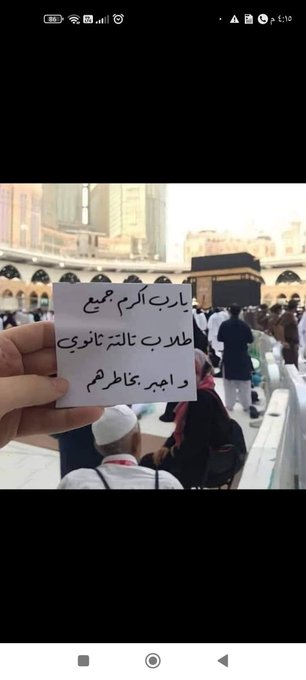 ٤:١٥ م
86
يارب اكرم جميع
طلاب تالتة ثانوي
واجبر بخاطرهم